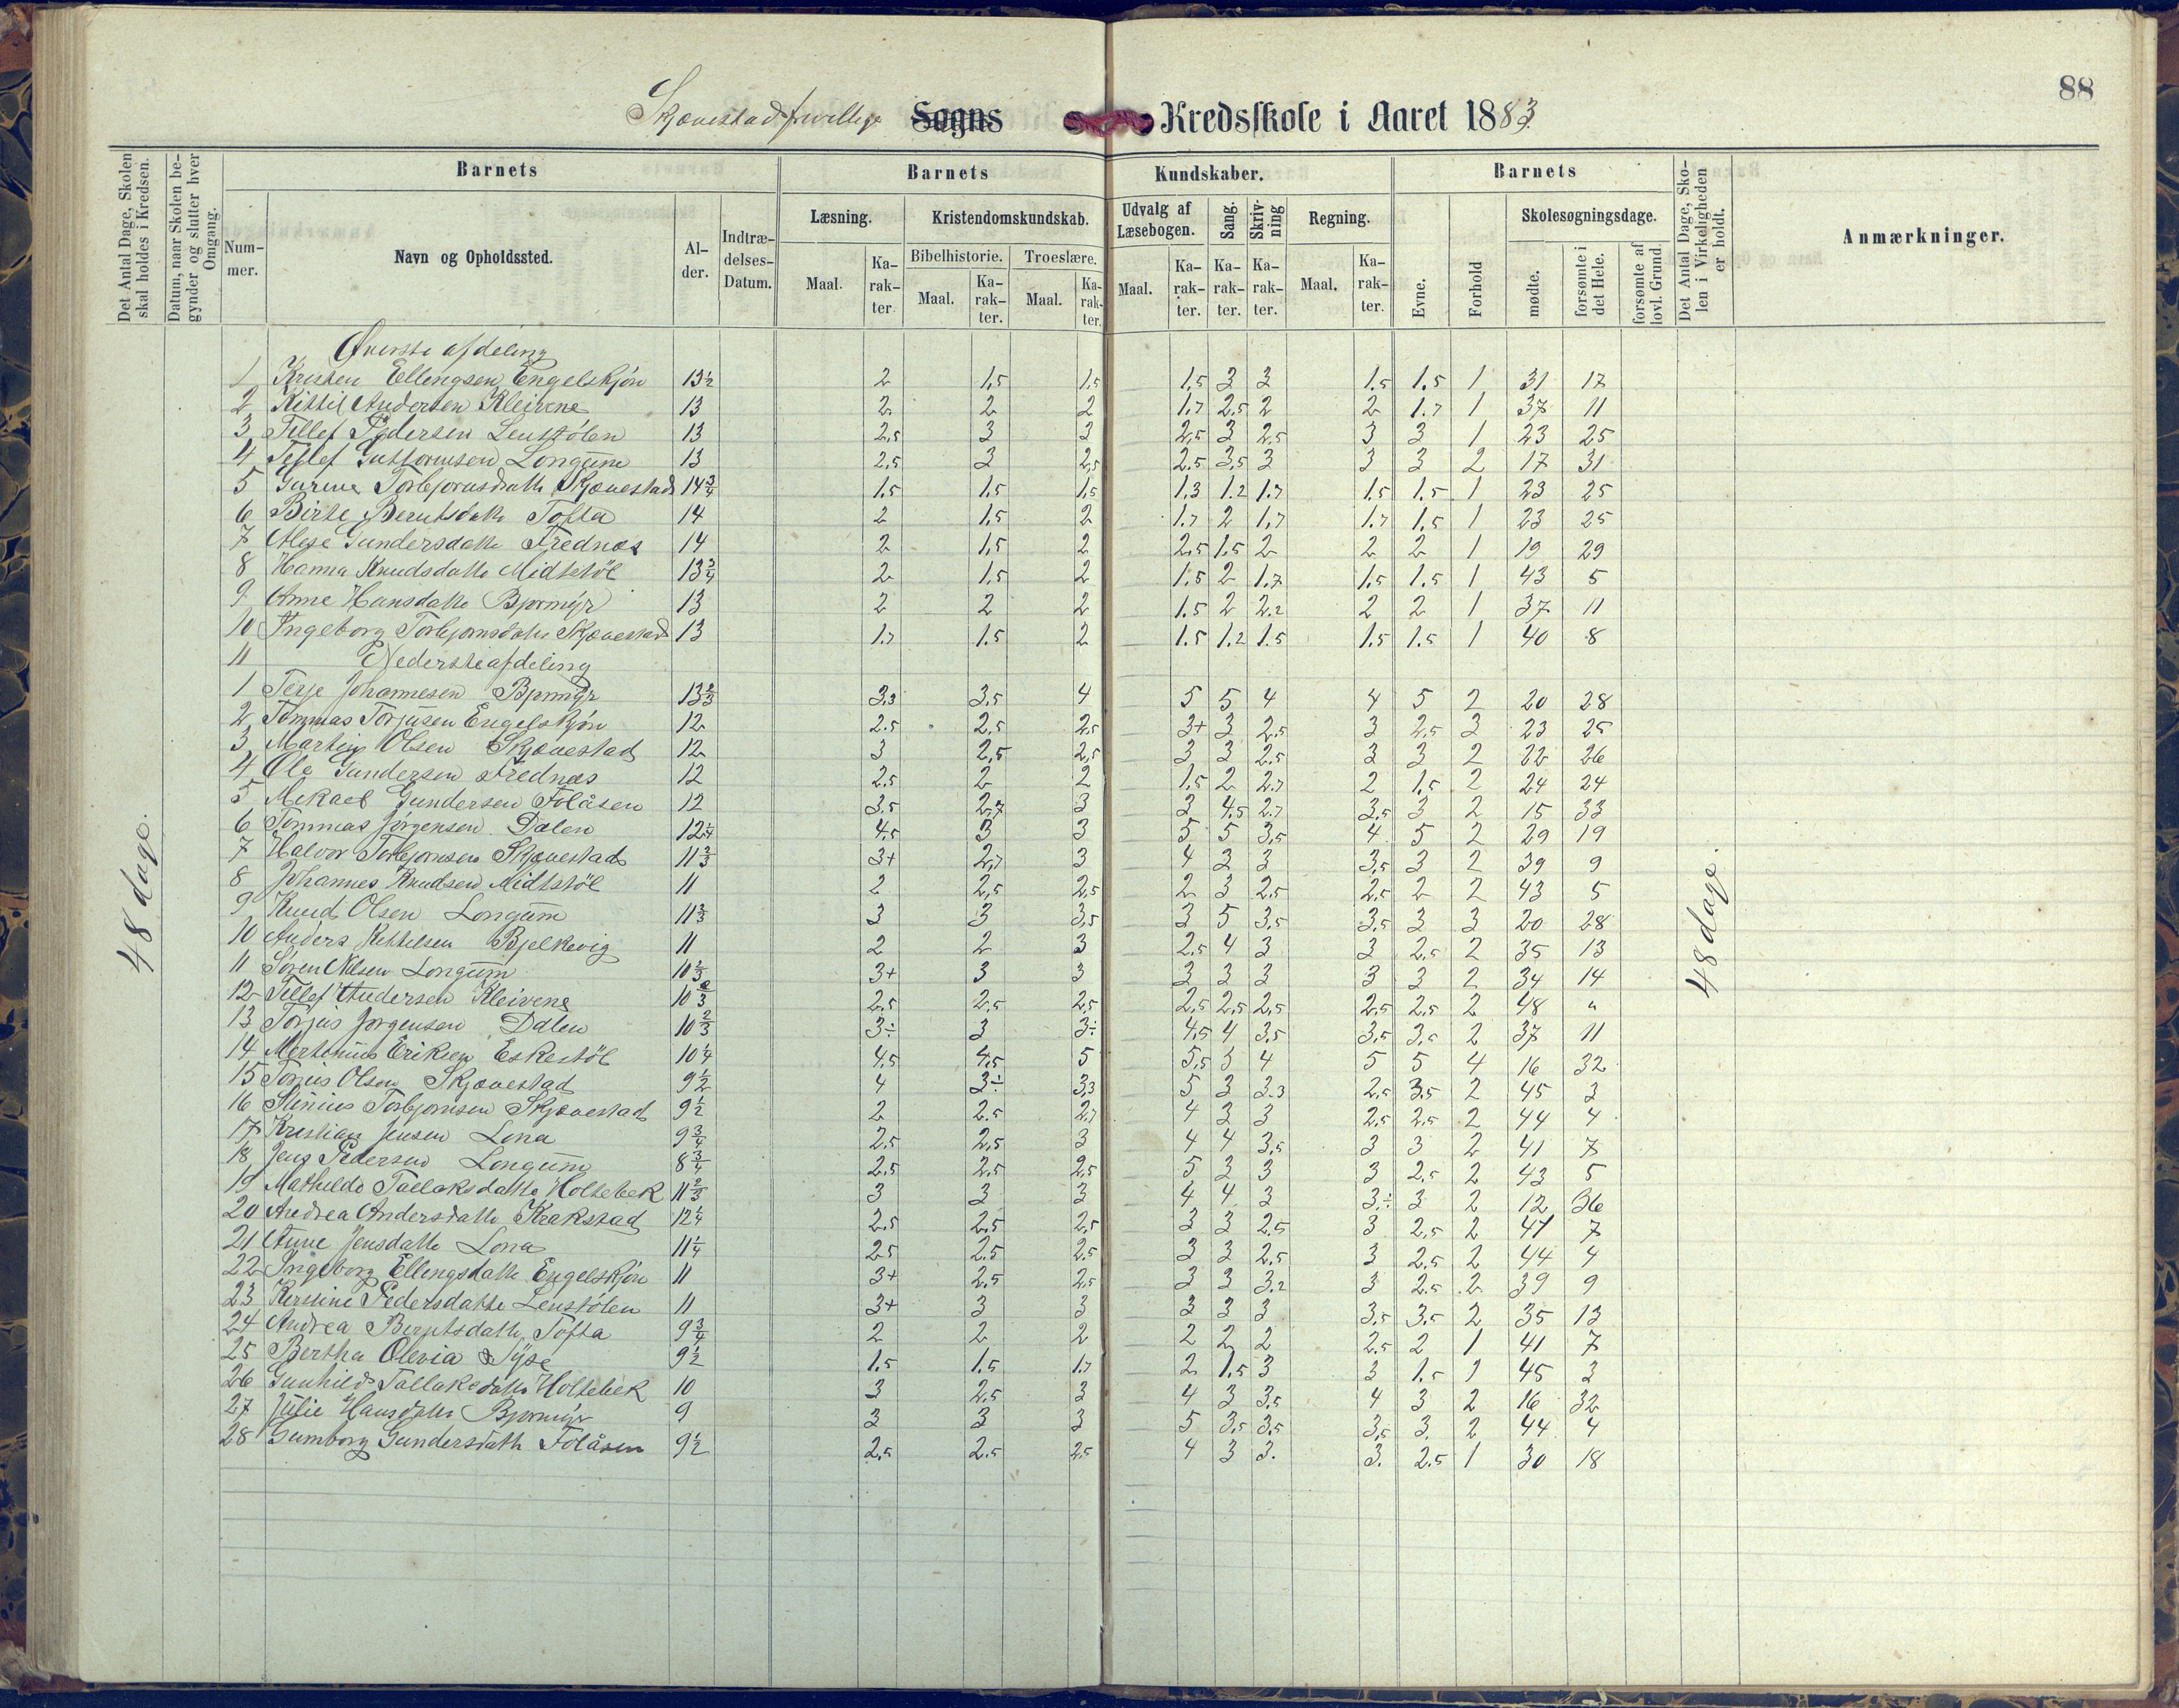 88
Skjævestad frivillige Sogns Kredsskole i Aaret 1883.
Det Antal Dage, Skolen skal holdes i Kredsen.
Datum, naar Skolen begynder og slutter hver Omgang.
Barnets Barnets Kundskaber. Barnets
Nummer. Navn og Opholdssted. Alder. Indtrædelses-Datum.
Læsning. Kristendomskundskab. Udvalg af Læsebogen. Sang. Skrivning Regning. Evne. Forhold Skolesøgningsdage.
Bibelhistorie. Troeslære.
Maal. Karakter. Maal. Karakter. Maal. Karakter. Maal. Karakter. Karakter. Karakter. Maal. Karakter. mødte. forsømte i det Hele. forsømte af lovl. Grund.
Det Antal Dage, Skolen i Virkeligheden er holdt.
Anmærkninger.
48 dage.
48 dage.
Øverste afdeling
1 Kristen Ellengsen Engelskjøn 13½ 2 1,5 1,5 1,5 3 3 1.5 1.5 1 31 17
2 Kittil Andersen Kleivene 13 2 2 2 1,7 2,5 2 2 1.7 1 37 11
3 Tellef Pedersen Lenstølen 13 2,5 3 3 2,5 3 2.5 3 3 1 23 25
4 Tellef Guttormsen Longum 13 2,5 3 2,5 2.5 3,5 3 3 3 2 17 31
5 Gurine Torbjørnsdatte Skjævestad 14¾ 1.5 1.5 1.5 1,3 1.2 1.7 1.5 1.5 1 23 25
6 Birte Berntsdatte Tofta 14 2 1,5 2 1.7 2 1,7 1.7 1,5 1 23 25
7 Aase Gundersdatte Frednæs 14 2 1,5 2 2,5 1.5 2 2 2 1 19 29
8 Hanna Knudsdatte Midtstøl 13¾ 2 1,5 2 1.5 2 1.7 1.5 1.5 1 43 5
9 Anne Hansdatte Bjørmyr 13 2 2 2 1.5 2 2.2 2 2 1 37 11
10 Ingeborg Torbjørnsdatte Skjævestad 13 1.7 1.5 2 1.5 1.2 1.5 1.5 1.5 1 40 8
11 Nedersteafdeling
1 Terje Johannesen Bjørmyr 13⅔ 3,3 3,5 4 5 5 4 4 5 2 20 28
2 Tommas Torjusen Engelskjøn 12 2.5 2,5 2,5 3+ 3 2,5 3 2,5 3 23 25
3 Martin Olsen Skjævestad 12 3 2,5 2,5 3 3 2.5 3 3 2 22 26
4 Ole Gundersen Frednæs 12 2,5 2 2 1,5 2 2.7 2 1,5 2 24 24
5 Mekael Gundersen Folåsen 12 3,5 2,7 3 3 4,5 2.7 3,5 3 2 15 33
6 Tommas Jørgensen Dalen 12¼ 4,5 3 3 5 5 3,5 4 5 2 29 19
7 Halvor Torbjørnsen Skjævestad 11⅔ 3+ 2,7 3 4 3 3 3,5 3 2 39 9
8 Johannes Knudsen Midtstøl 11 2 2,5 2,5 2 3 2.5 2,5 2 2 43 5
9 Knud Olsen Longum 11⅔ 3 3 3,5 3 5 3,5 3,5 3 3 20 28
10 Anders Kittelsen Bjelkevig 11 2 2 3 2,5 4 3 3 2,5 2 35 13
11 Søren Nilsen Longum 10⅔ 3+ 3 3 3 3 3 3 3 2 34 14
12 Tellef Andersen Kleivene 10⅔ 2,5 2,5 2,5 2,5 2,5 2,5 2,5 2,5 2 48 "
13 Torjus Jørgensen Dalen 10⅔ 3÷ 3 3÷ 4,5 4 3,5 3,5 3,5 2 37 11
14 Mertinius Eriksen Eskestøl 10¼ 4,5 4,5 5 5,5 3 4 5 5 4 16 32
15 Torjus Olsen Skjævestad 9½ 4 3÷ 3,3 5 3 3.3 2,5 3.5 2 45 3
16 Stinius Torbjørnsen Skjævestad 9½ 2 2.5 2,7 4 3 3 2,5 2,5 2 44 4
17 Kristian Jensen Lona 9¾ 2,5 2,5 3 4 4 3,5 3 3 2 41 7
18 Jens Pedersen Longum 8¾ 2,5 2,5 2,5 5 3 3 3 2,5 2 43 5
19 Mathilde Tallaksdatte Holtebek 11⅔ 3 3 3 4 4 3 3÷ 3 2 12 36
20 Andrea Andersdatte Krakstad 12¼ 2,5 2,5 2,5 3 3 2.5 3 2,5 2 41 7
21 Anne Jensdatte Lona 11¼ 2,5 2.5 2.5 3 3 2,5 3 2,5 2 44 4
22 Ingeborg Ellingsdatte Engelskjøn 11 3+ 2.5 2,5 3 3 3.2 3 2.5 2 39 9
23 Kerstine Pedersdatte Lenstølen 11 3+ 3 3 3 3 3 3,5 3,5 2 35 13
24 Andrea Berntsdatte Tofta 9¾ 2 2 2 2 2 2 2.5 2 1 41 7
25 Bertha Olevia Syse 9½ 1.5 1.5 1.7 2 1,5 3 3 1.5 1 45 3
26 Gunhild Tallaksdatte Holtebek 10 3 2,5 3 4 3 3,5 4 3 2 16 32
27 Julie Hansdatte Bjørmyr 9 3 3 3 5 3,5 3,5 3,5 3. 2 44 4
28 Gumborg Gundersdatte Folåsen 9½ 2,5 2.5 2,5 4 3 3. 3. 2.5 1 30 18